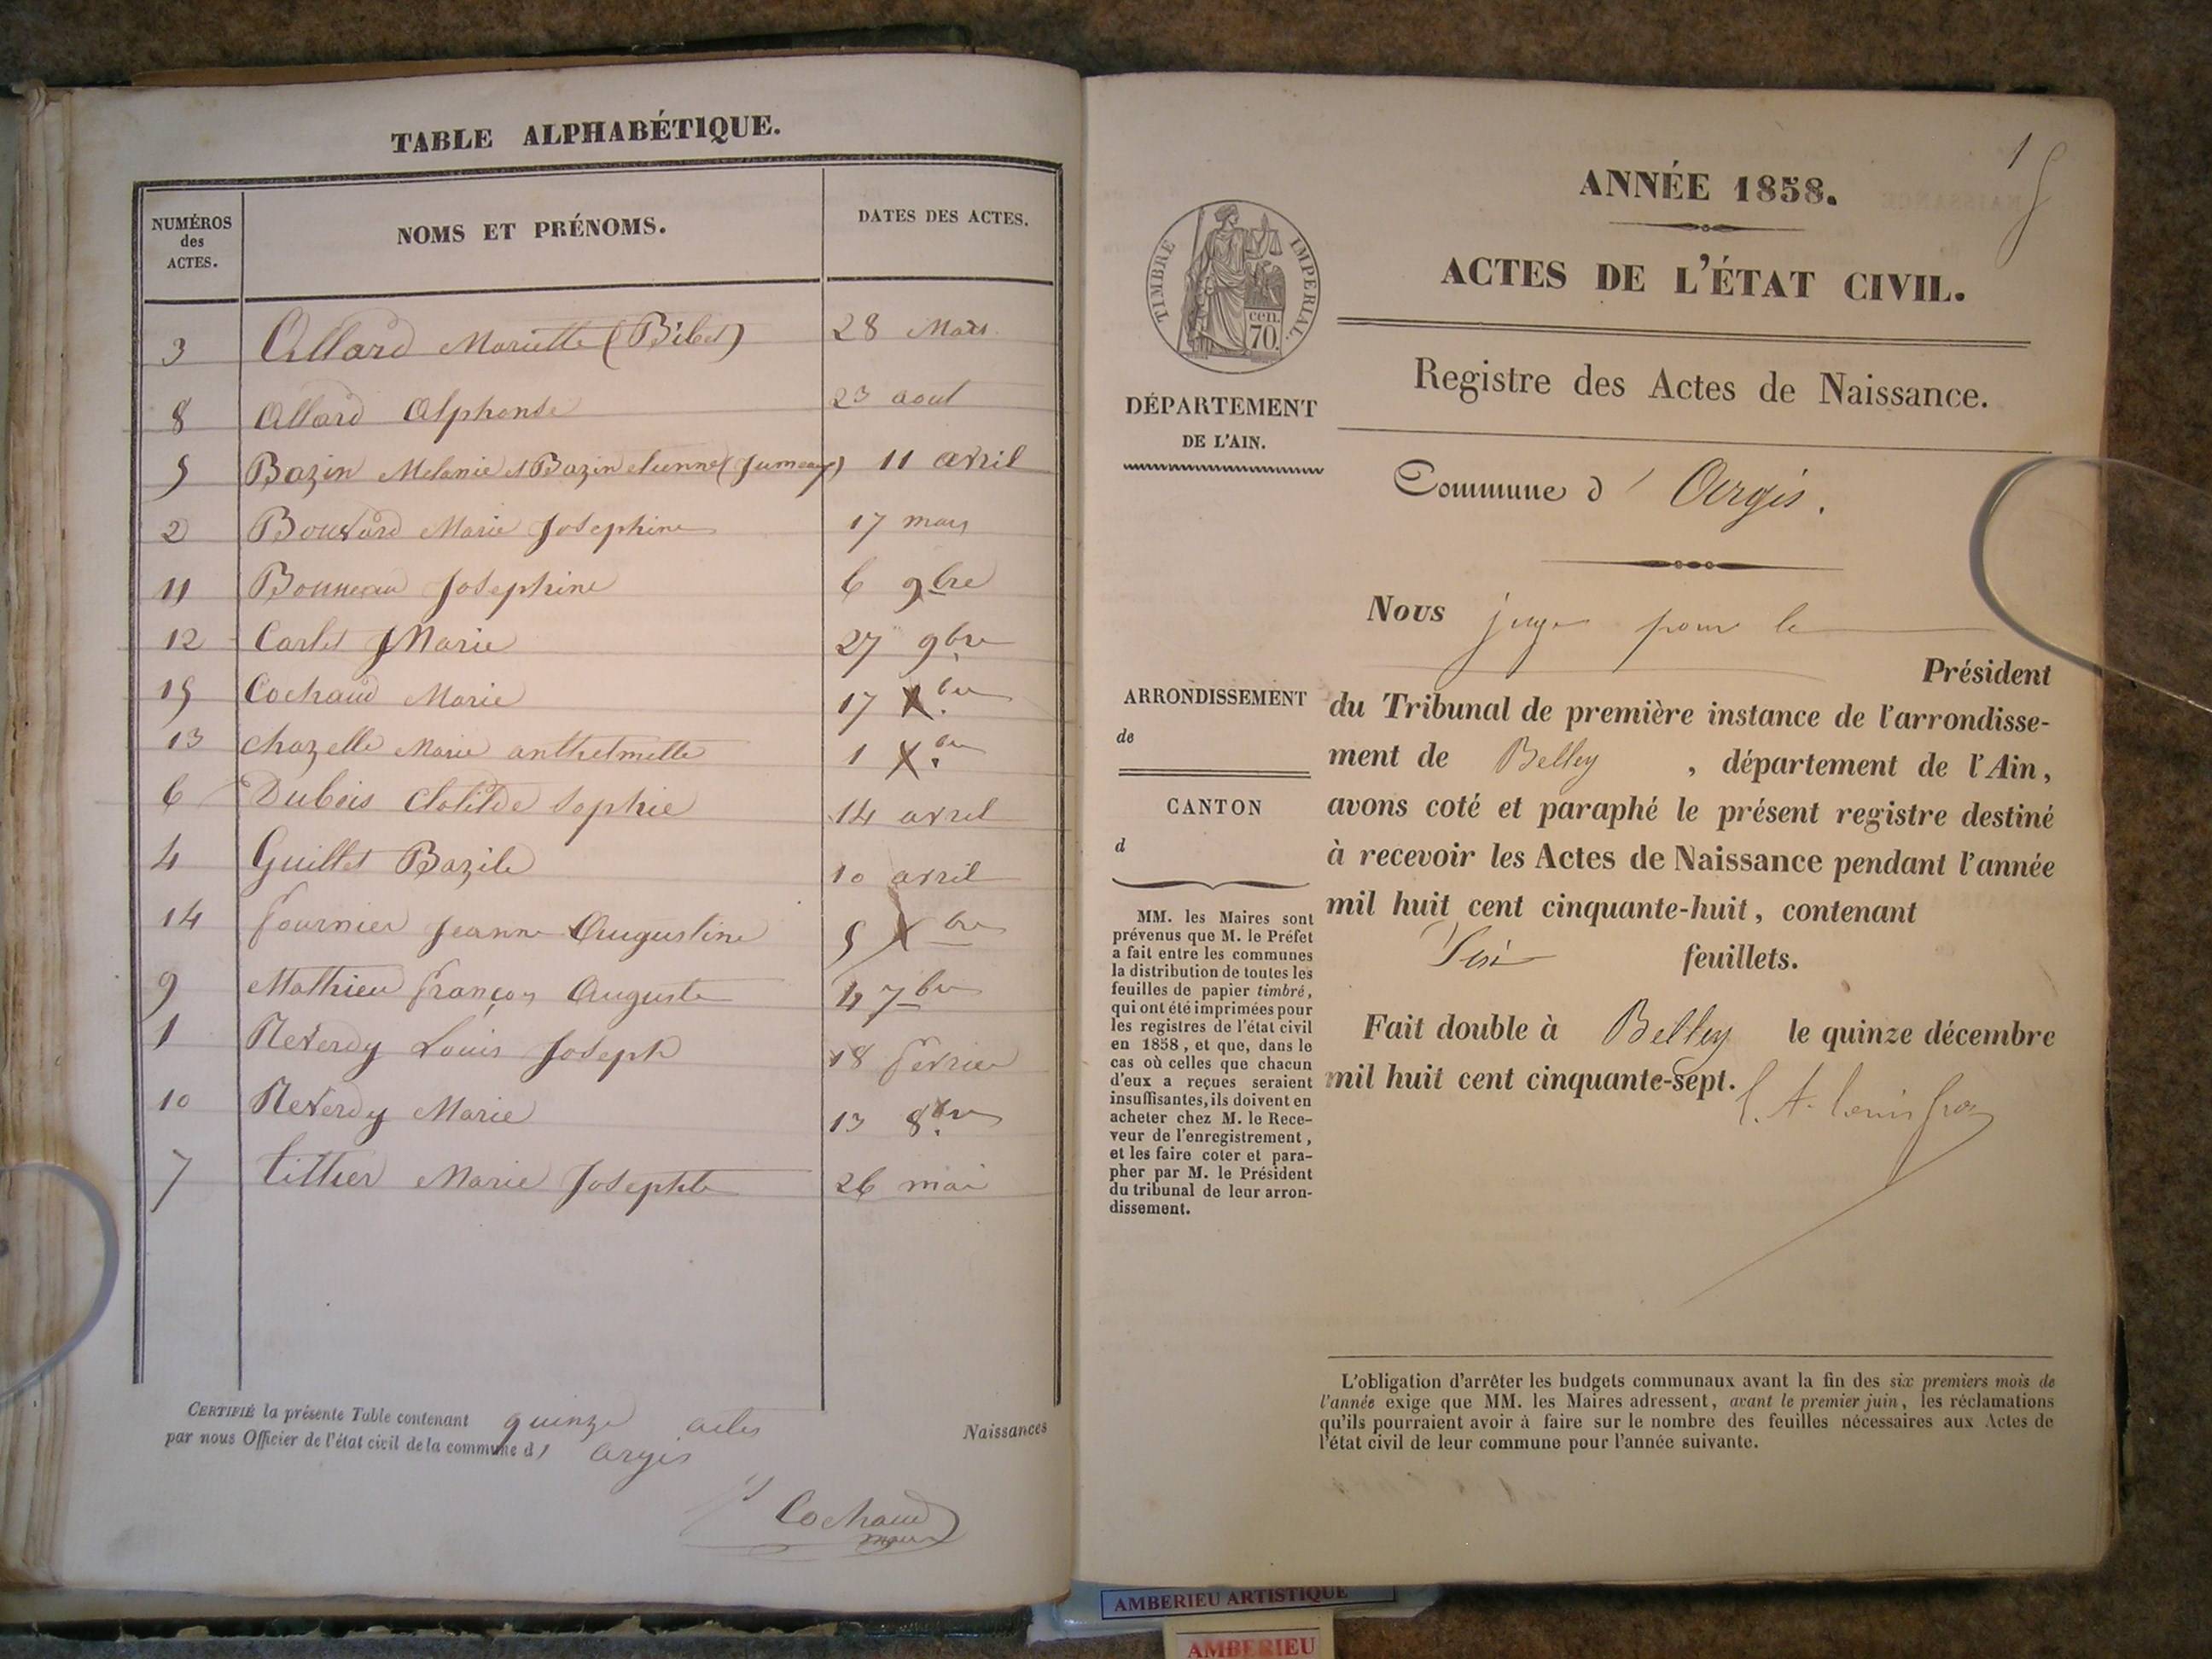 TABLE ALPHABÉTIQUE.
NUMÉROS des ACTES. NOMS ET PRÉNOMS. DATES DES ACTES.
3 Allard Mariette (Bibet) 28 Mars
8 Allard Alphonse 23 aout
5 Bazin Melanie et Bazin etienne (Jumeaux) 11 avril
2 Bouvard Marie Josephine 17 mars
11 Bonneau Josephine 6 9bre
12 Carlet J Marie 27 9bre
15 Cochaud Marie 17 Xbre
13 chazelle Marie anthelmette 1 Xbre
6 Dubois Clotilde Sophie 14 avril
4 Guillet Bazile 10 avril
14 fournier Jeanne Augustine 5 Xbre
9 Mathieu françois Auguste 4 7bre
1 Reverdy Louis Joseph 18 fevrier
10 Reverdy Marie 13 8bre
7 tillier Marie Josephte 26 mai
CERTIFIÉ la présente Table contenant quinze actes Naissances
par nous Officier de l'état civil de la commune d' argis
Cochaud
maire
1
ANNÉE 1858.
ACTES DE L'ÉTAT CIVIL.
TIMBRE IMPERIAL.
cen.
70.
Registre des Actes de Naissance.
DÉPARTEMENT
DE L'AIN.
Commune d' Argis.
Nous juge pour le
Président
ARRONDISSEMENT
de
CANTON
d
du Tribunal de première instance de l'arrondisse-
ment de Belley, département de l'Ain,
avons coté et paraphé le présent registre destiné
à recevoir les Actes de Naissance pendant l'année
mil huit cent cinquante-huit, contenant
feuillets.
Fait double à Belley le quinze décembre
mil huit cent cinquante-sept.
MM. les Maires sont
prévenus que M. le Préfet
a fait entre les communes
la distribution de toutes les
feuilles de papier timbré,
qui ont été imprimées pour
les registres de l'état civil
en 1858, et que, dans le
cas où celles que chacun
d'eux a reçues seraient
insuffisantes, ils doivent en
acheter chez M. le Rece-
veur de l'enregistrement,
et les faire coter et para-
pher par M. le Président
du tribunal de leur arron-
dissement.
L'obligation d'arrêter les budgets communaux avant la fin des six premiers mois de
l'année exige que MM. les Maires adressent, avant le premier juin, les réclamations
qu'ils pourraient avoir à faire sur le nombre des feuilles nécessaires aux Actes de
l'état civil de leur commune pour l'année suivante.
AMBERIEU ARTISTIQUE
AMBERIEU